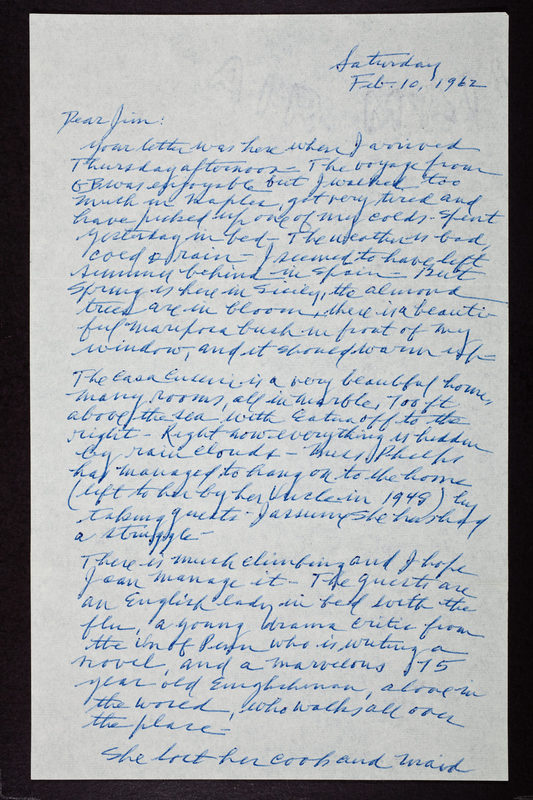 Saturday
Feb. 10, 1962
Dear Jim:
Your letter was here when I arrived
Thursday afternoon - The voyage from
was enjoyable but I walked too
much in Naples, got very tired and
have picked up one of my colds - Spent
yesterday in bed - The weather is bad,
cold & rain - I seemed to have left
summer behind in Spain - But
Spring is here in Sicily, the almond
trees are in bloom, there is a beauti-
ful mariposa bush in front of my
window, and it should warm up -
The Casa Cuseni is a very beautiful home,
many rooms, all in marble, 700 ft
above the sea with Eatna off to the
right - Right now everything is hidden
by rain clouds - Miss Phelps
has managed to hang on to the home
(left to her by her Uncle in 1948) by
taking guests - I assume she has had
a struggle -
There is much climbing and I hope
I can manage it - The guests are
an English lady in bed with the
flu, a young drama critic from
the Un of Penn who is writing a
novel, and a marvelous 75
year old Englishman, alone in
the world, who walks all over
the place -
She lost her cook and maid